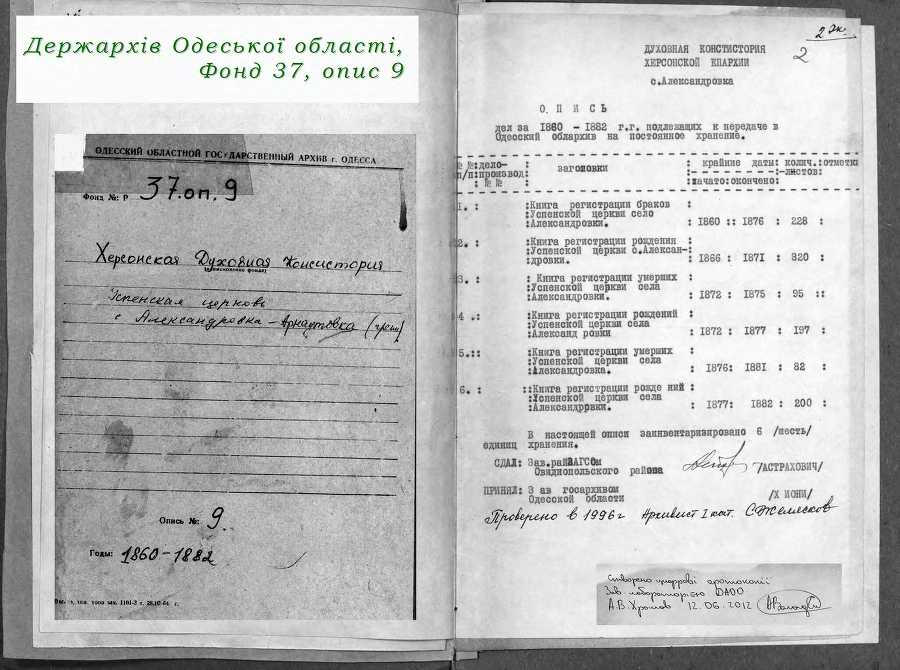 Держархів Одеської області,
Фонд 37, опис 9
ОДЕССКИЙ ОБЛАСТНОЙ ГОСУДАРСТВЕННЫЙ АРХИВ г. ОДЕССА
Фонд №: Р 37.оп.9
Херсонская Духовная Консистория
(наименование фонда)
Успенская церковь
с Александровка-Арнаутовка
Опись №: 9
Годы: 1860-1882
2 Эк.
2
ДУХОВНАЯ КОНСТИСТОРИЯ
ХЕРСОНСКОЙ ЕПАРХИИ
с.Александровка
О П И С Ь
дел за 1860 - 1882 г.г. подлежащих к передаче в
Одесский облархив на постоянное хранение.
№ №:дело- : заголовки : крайние даты: колич.:отметки
п/п:производ: :листов:
: № № : :начато:окончено:
1. : :Книга регистрации браков :
:Успенской церкви село
:Александровки. : 1860 :: 1876 : 228 :
2. : :Книга регистрации рождения :
:Успенской церкви с.Алексан-:
:дровки. : 1866 : 1871 : 320 :
3. : : Книга регистрации умерших :
:Успенской церкви села
:Александровки. : 1872 : 1875 : 95 ::
4 .: :Книга регистрации рождений :
:Успенской церкви села
:Александ ровки : 1872 : 1877 : 197 :
5.:: :Книга регистрации умерших :
:Успенской церкви села
:Александровка. : 1876: 1881 : 82 :
6. : ::Книга регистрации рожде ний :
:Успенской церкви села
:Александрвки. : 1877: 1882 : 200 :
В настоящей описи заинвентаризировано 6 /шесть/
единиц хранения.
СДАЛ: Зав.райЗАГСом
Овидиопольского района /АСТРАХОВИЧ/
ПРИНЯЛ: З ав госархивом
Одесской области /Х ИОНИ/
Проверено в 1996г Архивист I кат. С Желясков
Створено цифрові фотокопії
Зав. лабораторією ДАОО
А.В.Хромов 12.06.2012